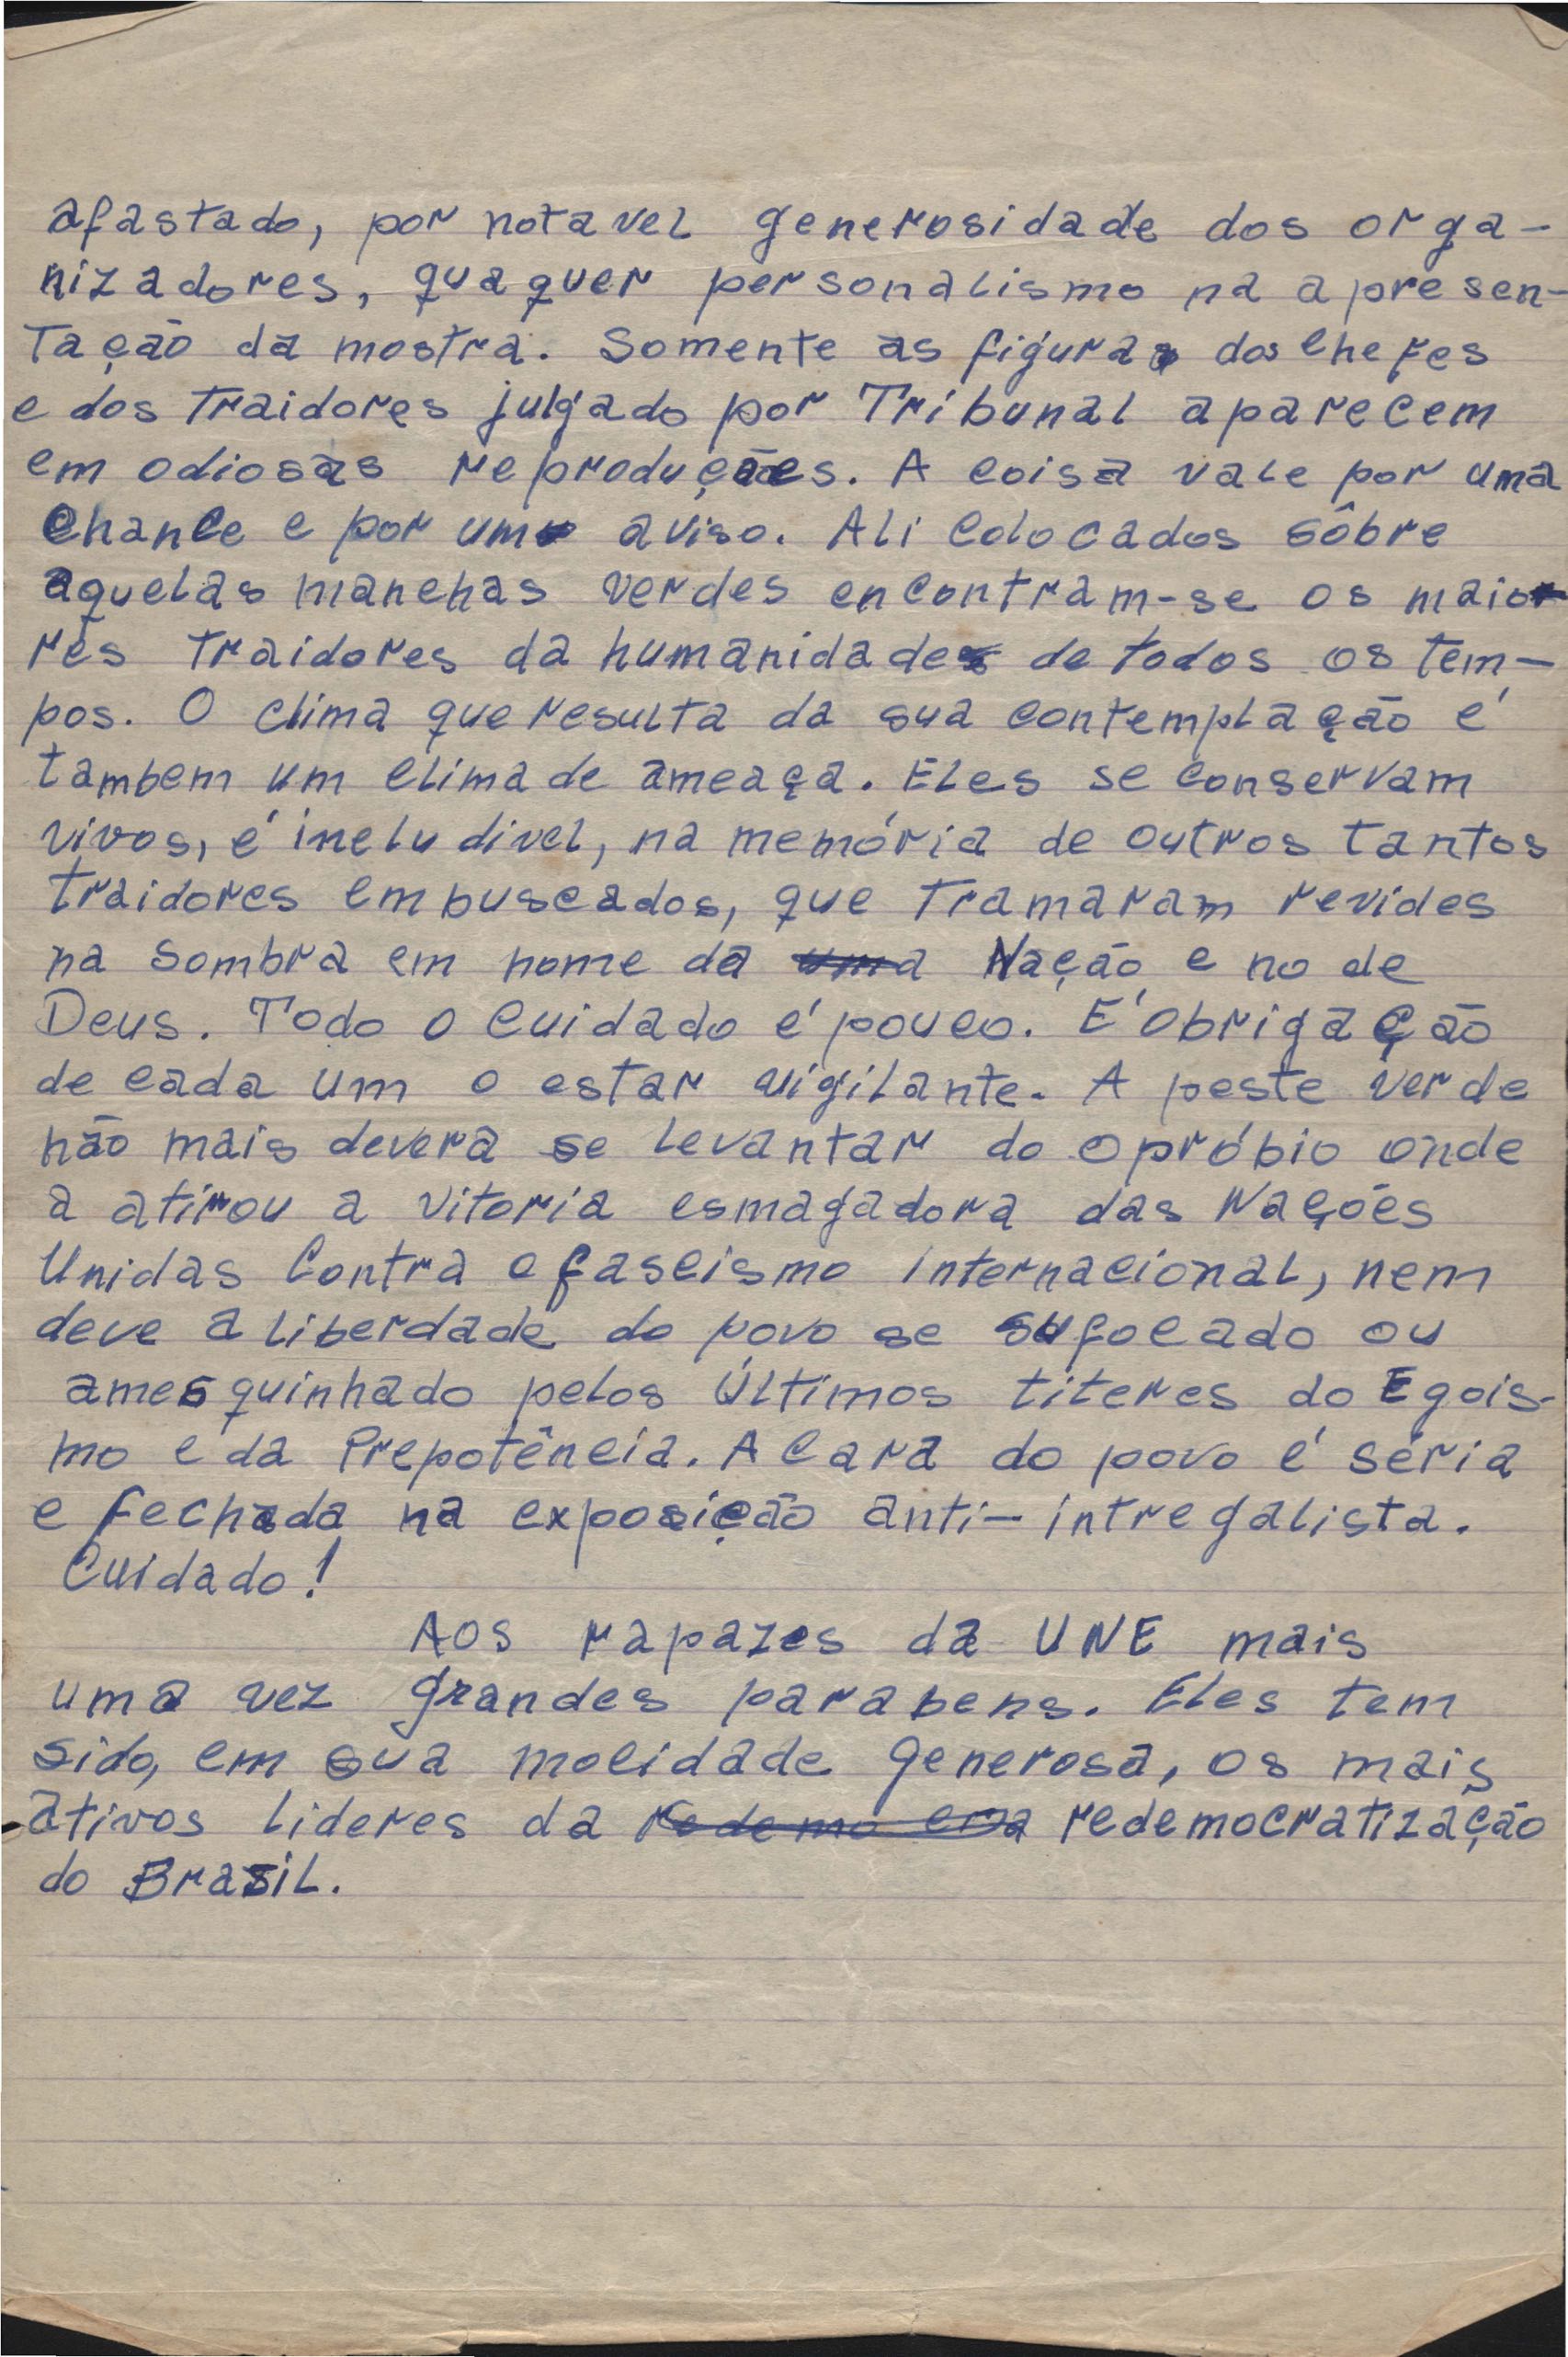 afastado, por notavel generosidade dos orga-
nizadores, quaquer personalismo na apresen-
tação da mostra. Somente as figuras dos chefes
e dos traidores julgado por Tribunal aparecem
em odiosas reproduções. A coisa vale por uma
chance e por um aviso. Ali colocados sôbre
aquelas manchas verdes encontram-se os maio
res traidores da humanidade de todos os tem-
pos. O clima que resulta da sua contemplação é
tambem um clima de ameaça. Eles se conservam
vivos, é ineludivel, na memória de outros tantos
traidores embuscados, que tramaram revides
na sombra em nome da uma Nação e no de
Deus. Todo o cuidado é pouco. É obrigação
de cada um o estar vigilante. A peste verde
não mais deverá se levantar do opróbio onde
a atirou a vitoria esmagadora das Nações
Unidas contra o fascismo internacional, nem
deve a liberdade do povo se sufocado ou
amesquinhado pelos últimos titeres do Egois-
mo e da Prepotência. A cara do povo é séria
e fechada na exposição anti-intregalista.
Cuidado!
Aos rapazes da UNE mais
uma vez grandes parabens. Eles tem
sido, em sua mocidade generosa, os mais
ativos lideres da redemocra redemocratização
do Brasil.